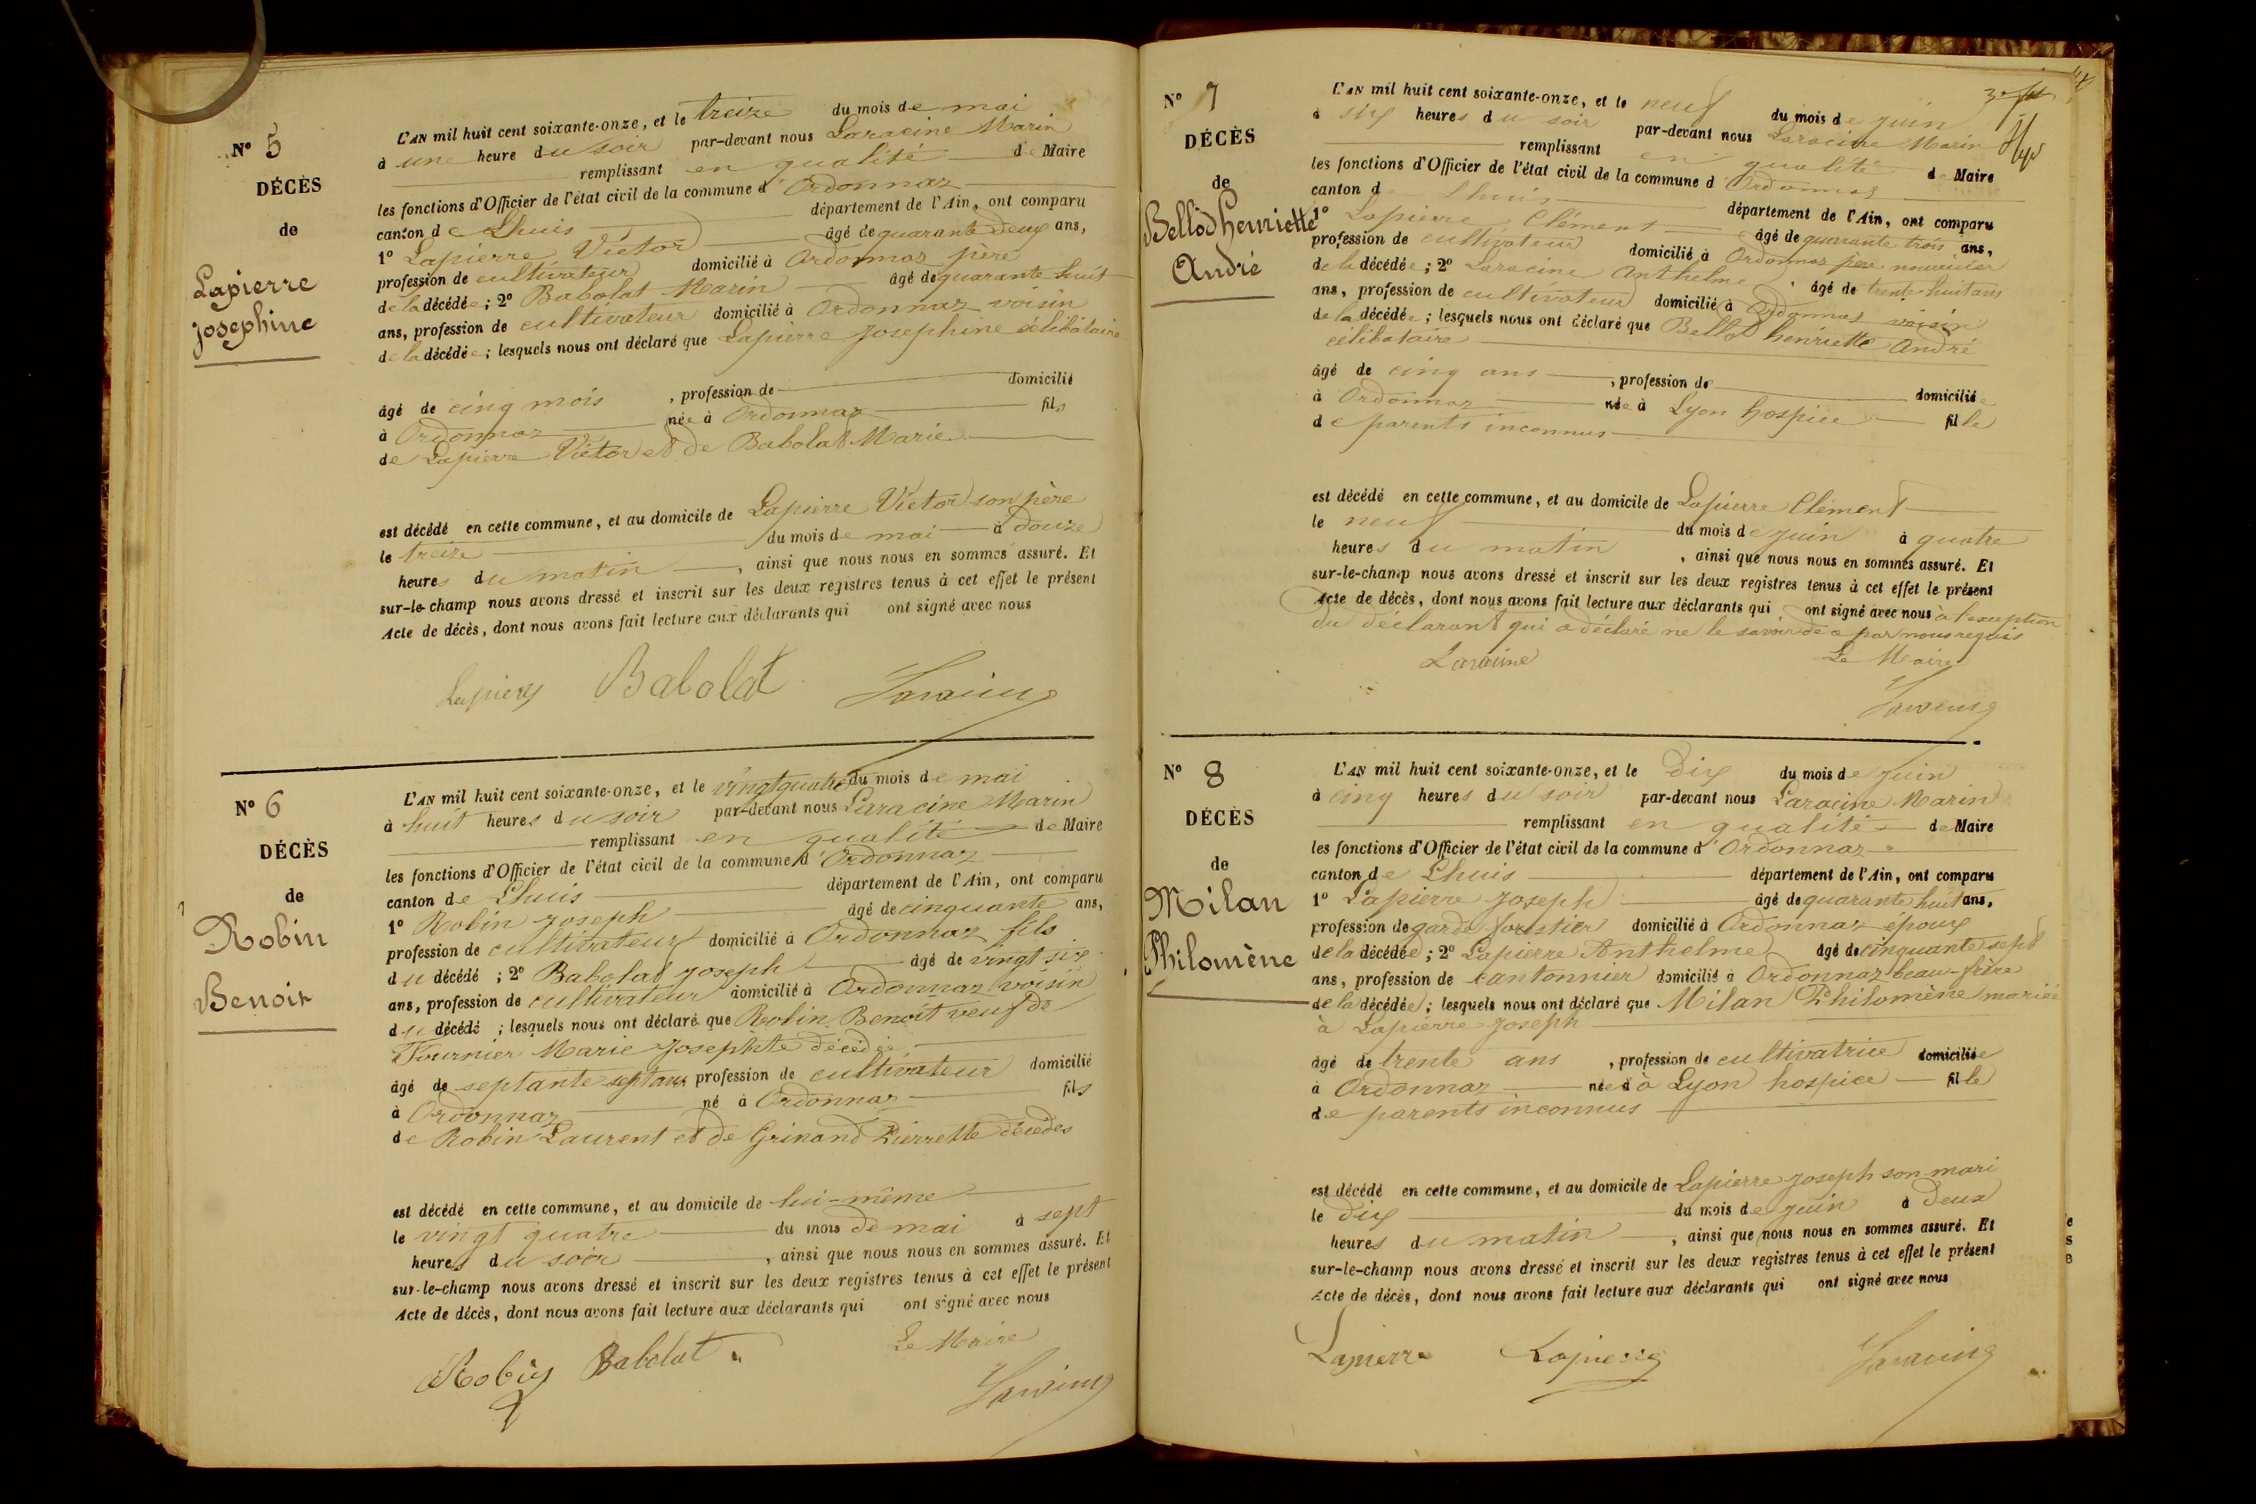 N° 5
DÉCÈS
de
Lapierre
Josephine
L'AN mil huit cent soixante-onze, et le treize du mois de mai
à une heure du soir par-devant nous Laracine Marin
remplissant en qualité de Maire
les fonctions d'Officier de l'état civil de la commune d'Ordonnaz
canton de Lhuis département de l'Ain, ont comparu
1° Lapierre Victor âgé de quarante deux ans,
profession de cultivateur domicilié à Ordonnaz père
de la décédée ; 2° Babolat Marin âgé de quarante huit
ans, profession de cultivateur domicilié à Ordonnaz voisin
de la décédée ; lesquels nous ont déclaré que Lapierre Josephine célibataire
âgé de cinq mois , profession de domicilié
à Ordonnaz née à Ordonnaz fils
de Lapierre Victor et de Babolat Marie
est décédé en cette commune, et au domicile de Lapierre Victor son père
le treize du mois de mai à douze
heures du matin , ainsi que nous nous en sommes assuré. Et
sur-le-champ nous avons dressé et inscrit sur les deux registres tenus à cet effet le présent
Acte de décès, dont nous avons fait lecture aux déclarants qui ont signé avec nous
Babolat
N° 6
DÉCÈS
de
Robin
Benoit
L'AN mil huit cent soixante-onze, et le vingt quatre du mois de mai
à huit heures du soir par-devant nous Laracine Marin
remplissant en qualité de Maire
les fonctions d'Officier de l'état civil de la commune d'Ordonnaz
canton de Lhuis département de l'Ain, ont comparu
1° Robin Joseph âgé de cinquante ans,
profession de cultivateur domicilié à Ordonnaz fils
du décédé ; 2° Babolat Joseph âgé de vingt six
ans, profession de cultivateur domicilié à Ordonnaz voisin
du décédé ; lesquels nous ont déclaré que Robin Benoit veuf de
Fournier Marie Josephte décédée
âgé de septante sept ans profession de cultivateur domicilié
à Ordonnaz né à Ordonnaz fils
de Robin Laurent et de Grinand Pierrette décédés
est décédé en cette commune, et au domicile de lui-même
le vingt quatre du mois de mai à sept
heures du soir , ainsi que nous nous en sommes assuré. Et
sur-le-champ nous avons dressé et inscrit sur les deux registres tenus à cet effet le présent
Acte de décès, dont nous avons fait lecture aux déclarants qui ont signé avec nous
Le Maire
Robin Babolat
N° 7
DÉCÈS
de
Bellod henriette
André
L'AN mil huit cent soixante-onze, et le neuf du mois de juin
à six heures du soir par-devant nous Laracine Marin
remplissant en qualité de Maire
les fonctions d'Officier de l'état civil de la commune d'Ordonnaz
canton de Lhuis département de l'Ain, ont comparu
1° Lapierre Clément âgé de quarante trois ans,
profession de cultivateur domicilié à Ordonnaz père nourricier
de la décédée ; 2° Laracine Anthelme âgé de trente huit ans
ans, profession de cultivateur domicilié à Ordonnaz voisin
de la décédée ; lesquels nous ont déclaré que Bellod henriette André
célibataire
âgé de cinq ans , profession de domiciliée
à Ordonnaz née à Lyon hospice fille
de parents inconnus
est décédé en cette commune, et au domicile de Lapierre Clément
le neuf du mois de juin à quatre
heures du matin , ainsi que nous nous en sommes assuré. Et
sur-le-champ nous avons dressé et inscrit sur les deux registres tenus à cet effet le présent
Acte de décès, dont nous avons fait lecture aux déclarants qui ont signé avec nous à l'exception
du déclarant qui a déclaré ne le savoir de a par nous requis
Laracine Le Maire
N° 8
DÉCÈS
de
Milan
Philomène
L'AN mil huit cent soixante-onze, et le dix du mois de juin
à cinq heures du soir par-devant nous Laracine Marin
remplissant en qualité de Maire
les fonctions d'Officier de l'état civil de la commune d'Ordonnaz
canton de Lhuis département de l'Ain, ont comparu
1° Lapierre Joseph âgé de quarante huit ans,
profession de garde forestier domicilié à Ordonnaz époux
de la décédée ; 2° Lapierre Anthelme âgé de cinquante sept
ans, profession de cantonnier domicilié à Ordonnaz beau-frère
de la décédée ; lesquels nous ont déclaré que Milan Philomène mariée
à Lapierre Joseph
âgé de trente ans , profession de cultivatrice domiciliée
à Ordonnaz née à Lyon hospice fille
de parents inconnus
est décédé en cette commune, et au domicile de Lapierre Joseph son mari
le dix du mois de juin à deux
heures du matin , ainsi que nous nous en sommes assuré. Et
sur-le-champ nous avons dressé et inscrit sur les deux registres tenus à cet effet le présent
Acte de décès, dont nous avons fait lecture aux déclarants qui ont signé avec nous
Lapierre Lapierre